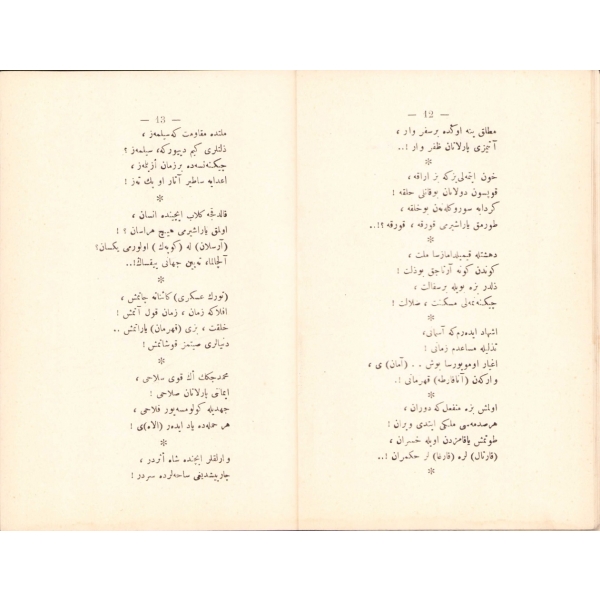 — 42 —
مطلق ینه اوکده بر سفر وار ،
آتیمزی پارلاتان ظفر وار !..
*
خون ایتمه لی یز که بز اراقه ،
قوپسون دولانان بوغانلی حلقه !
کردابه سوروکله نەن بو خلقه ،
طورمق یاراشیرمی قورقه ، قورقه ؟!..
*
دهشتله قیمیلدامازسا ملت ،
کوندن کونه آرتاجق بوذلت !
ذلدر بزه بویله بر سفالت ،
چیکنه نمه لی مسکنت ، ضلالت !
*
اشهاد ایده رم که آسمانی ،
تذلیله مساعدم زمانی !
اغیار اومویورسا بوش . . (آمان) ی ،
وارکەن (آنافارطه) قهرمانی !.
*
اولمش بزه منفعل که دوران ،
هر صدمه سی ملکی ایتدی ویران !
طوتمش یاقامزدن اویله خسران ،
(قارتال) لره (قارغا) لر حکمران !..
*
— 43 —
ملتده مقاومت که سیلمەز ،
ذلتلری کیم دییورکه ، سیلمەز ؟
چیکنه نسه ده بر زمان أزیلمەز ،
اعدایه ساطیر آتار او پك تەز !
*
قالدقجه کلاب ایچنده انسان ،
اولمق یاراشیرمی هیچ هراسان ؟ !
(آرسلان) له (کوپەك) اولورمی یکسان؟
آلچالما، تەپەن جهانی یرقسەڭ!..
*
(تورك عسکری) کائناته چاتمش ،
افلاکه زمان ، زمان قول آتمش !
خلقت ، بزی (قهرمان) یاراتمش ..
دنیالری صیتمز قوشاتمش !
*
محمدجکك أك قوی سلاحی ،
ایمانی پارلاتان صلاحی !
جهدیله کولومسه یور فلاحی ،
هر حمله ده یاد ایدەر (الاه)ی !
*
وارلقلر ایچنده شاه أثردر ،
چارپیشدیغی ساحه لرده سردر !